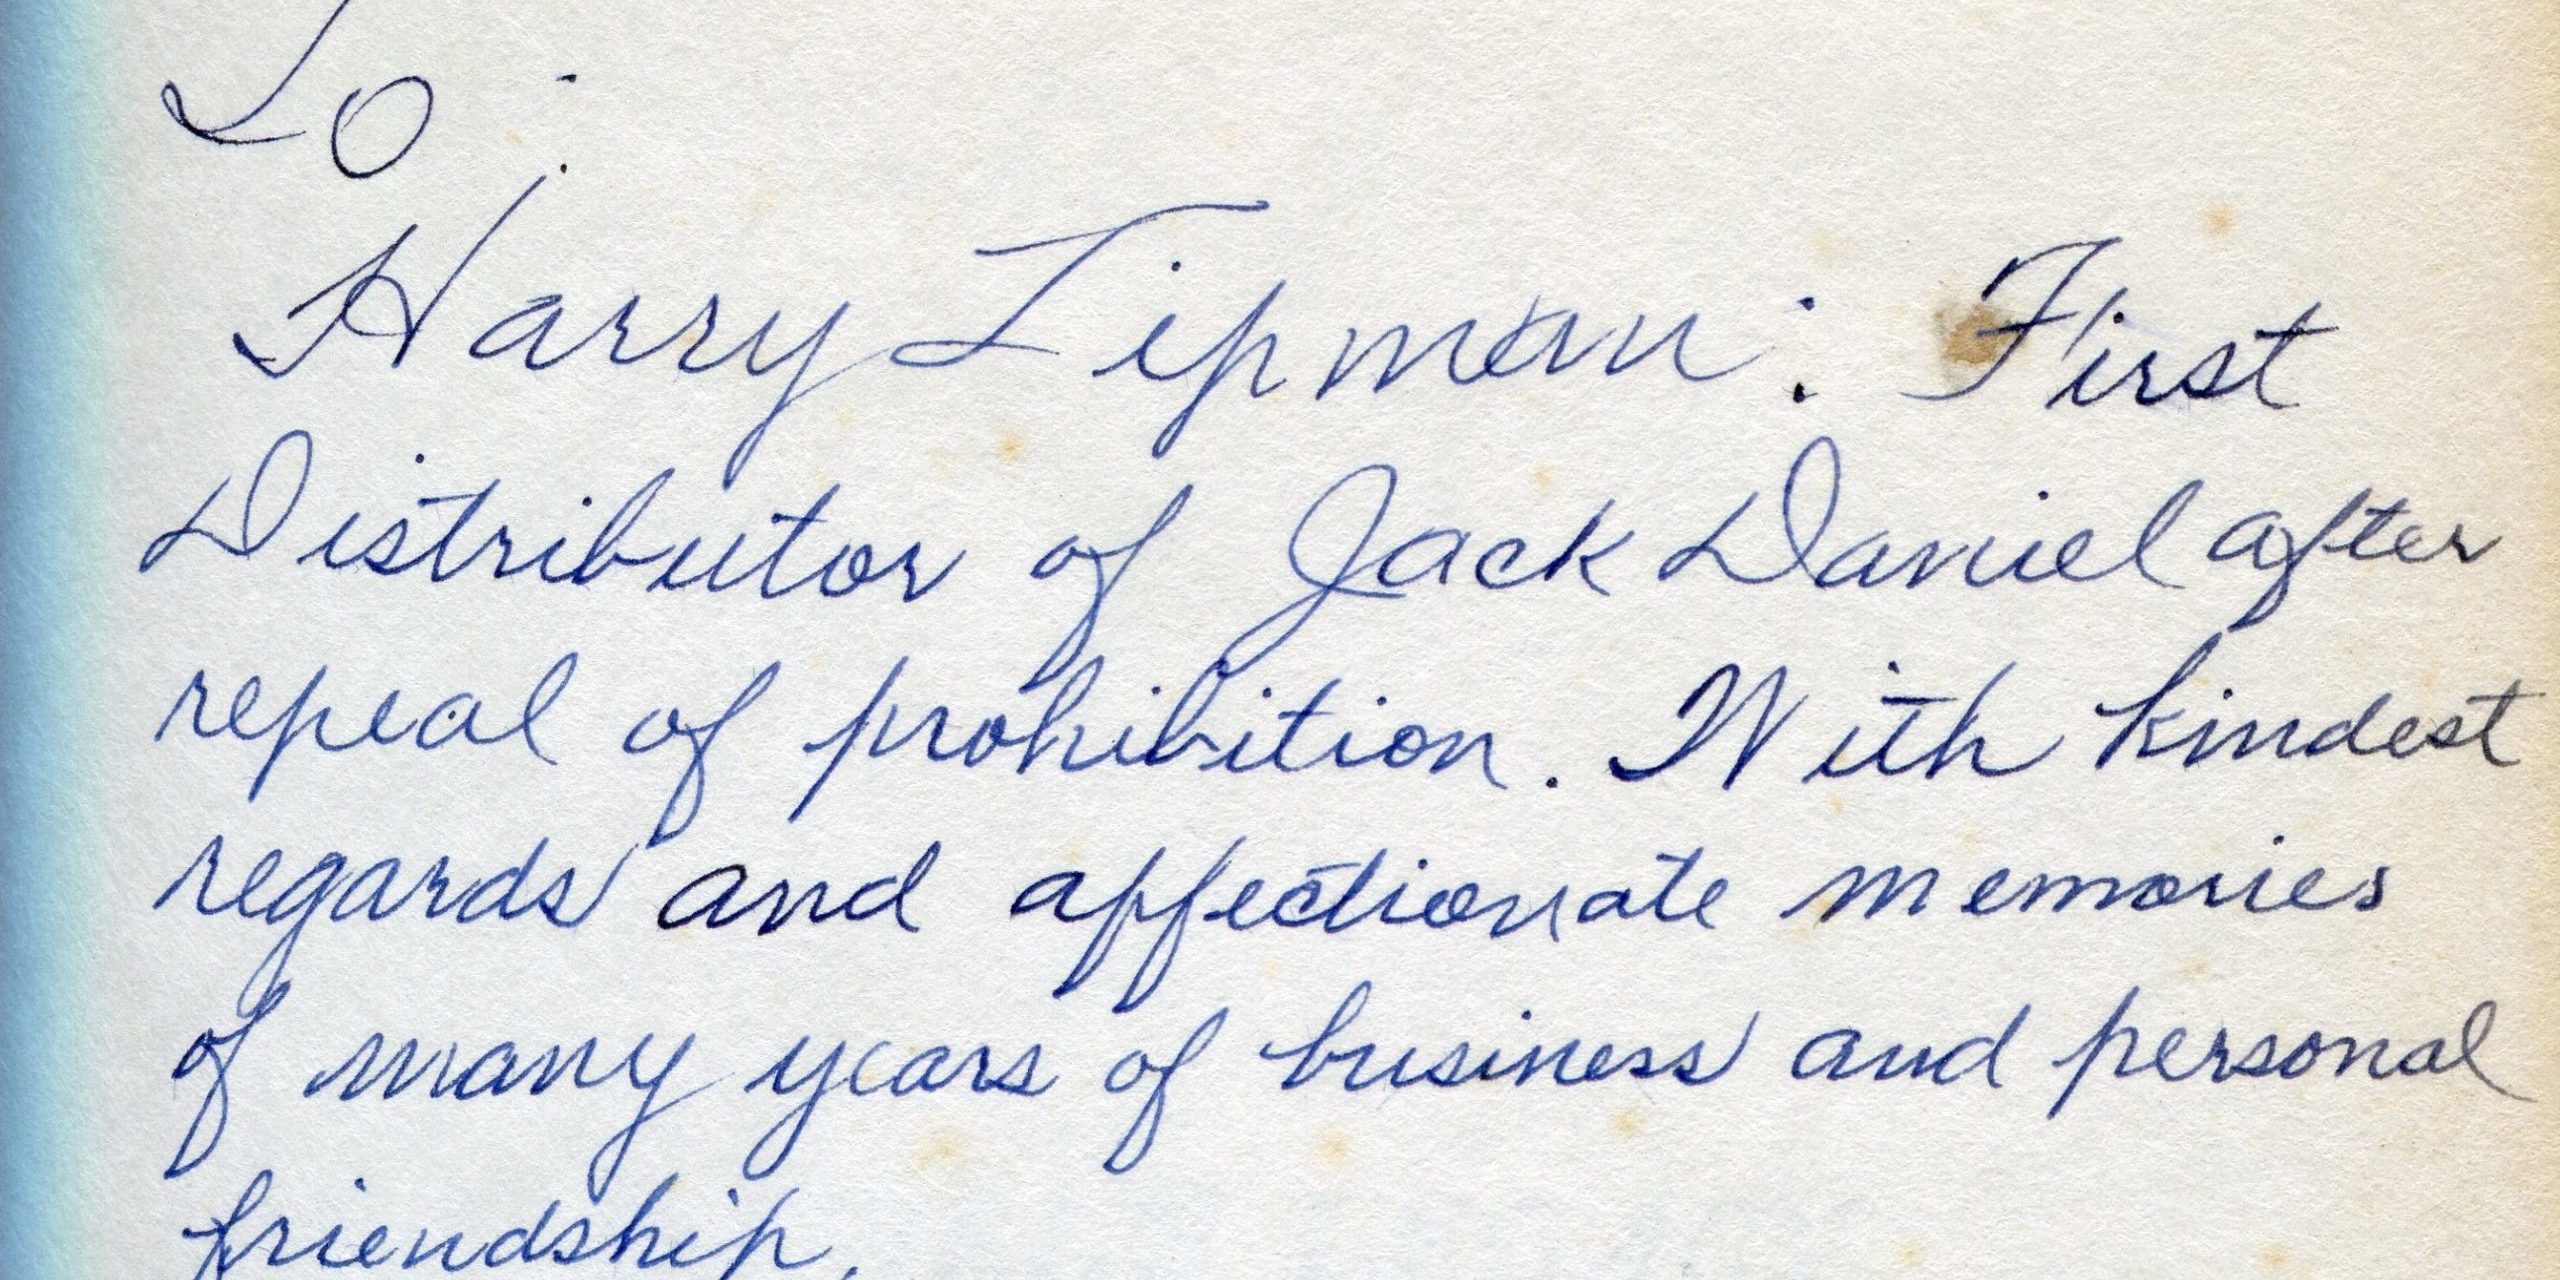 To:
Harry Tipman: First
Distributor of Jack Daniel after
repeal of prohibition. With kindest
regards and affectionate memories
of many years of business and personal
friendship.